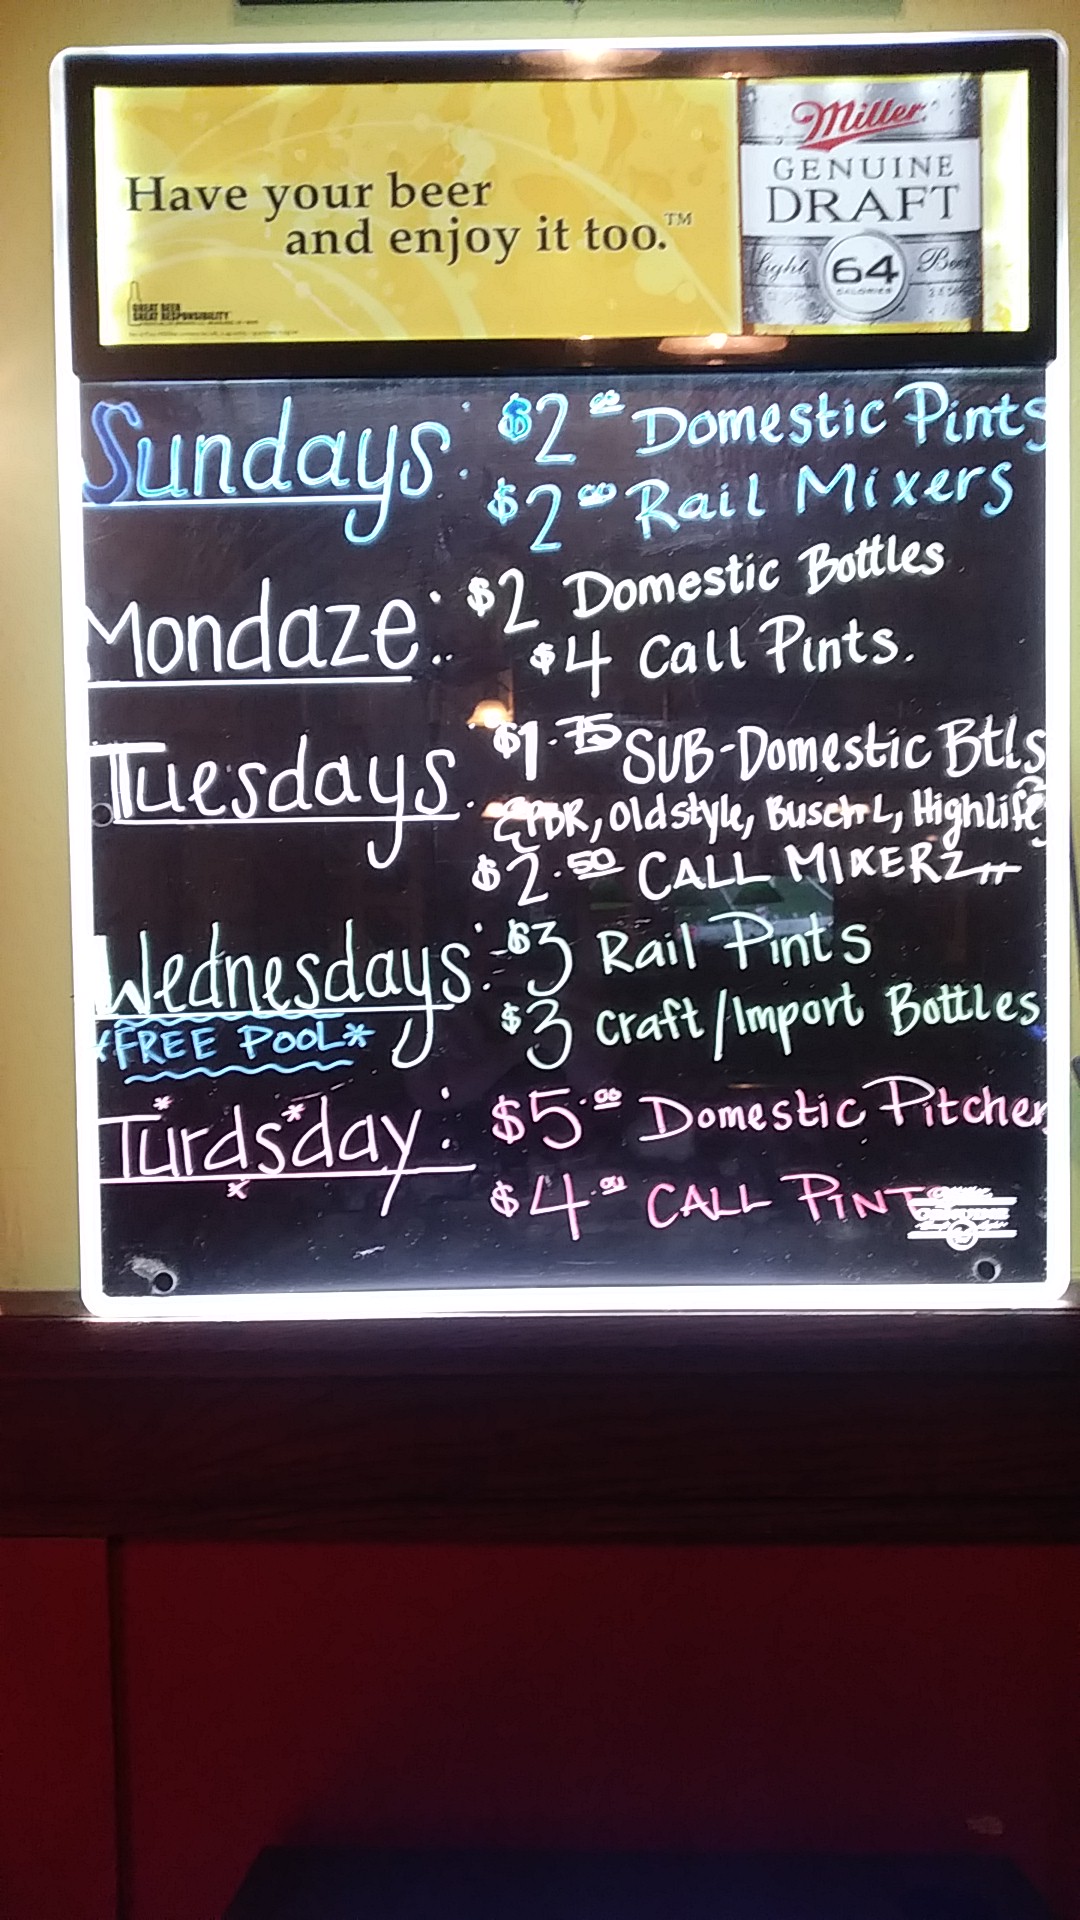 Have your beer
and enjoy it too.™
GREAT BEER
GREAT RESPONSIBILITY
Miller
GENUINE
DRAFT
Light 64 Beer
CALORIES
Sundays: $2.00 Domestic Pints
$2.00 Rail Mixers
Mondaze: $2 Domestic Bottles
$4 Call Pints.
Tuesdays: $1.75 SUB-Domestic Btls
PBR, Oldstyle, Busch L, Highlife
$2.50 CALL MIXERZ
Wednesdays: $3 Rail Pints
*FREE POOL* $3 Craft/Import Bottles
Turdsday: $5.00 Domestic Pitcher
$4.00 CALL PINT